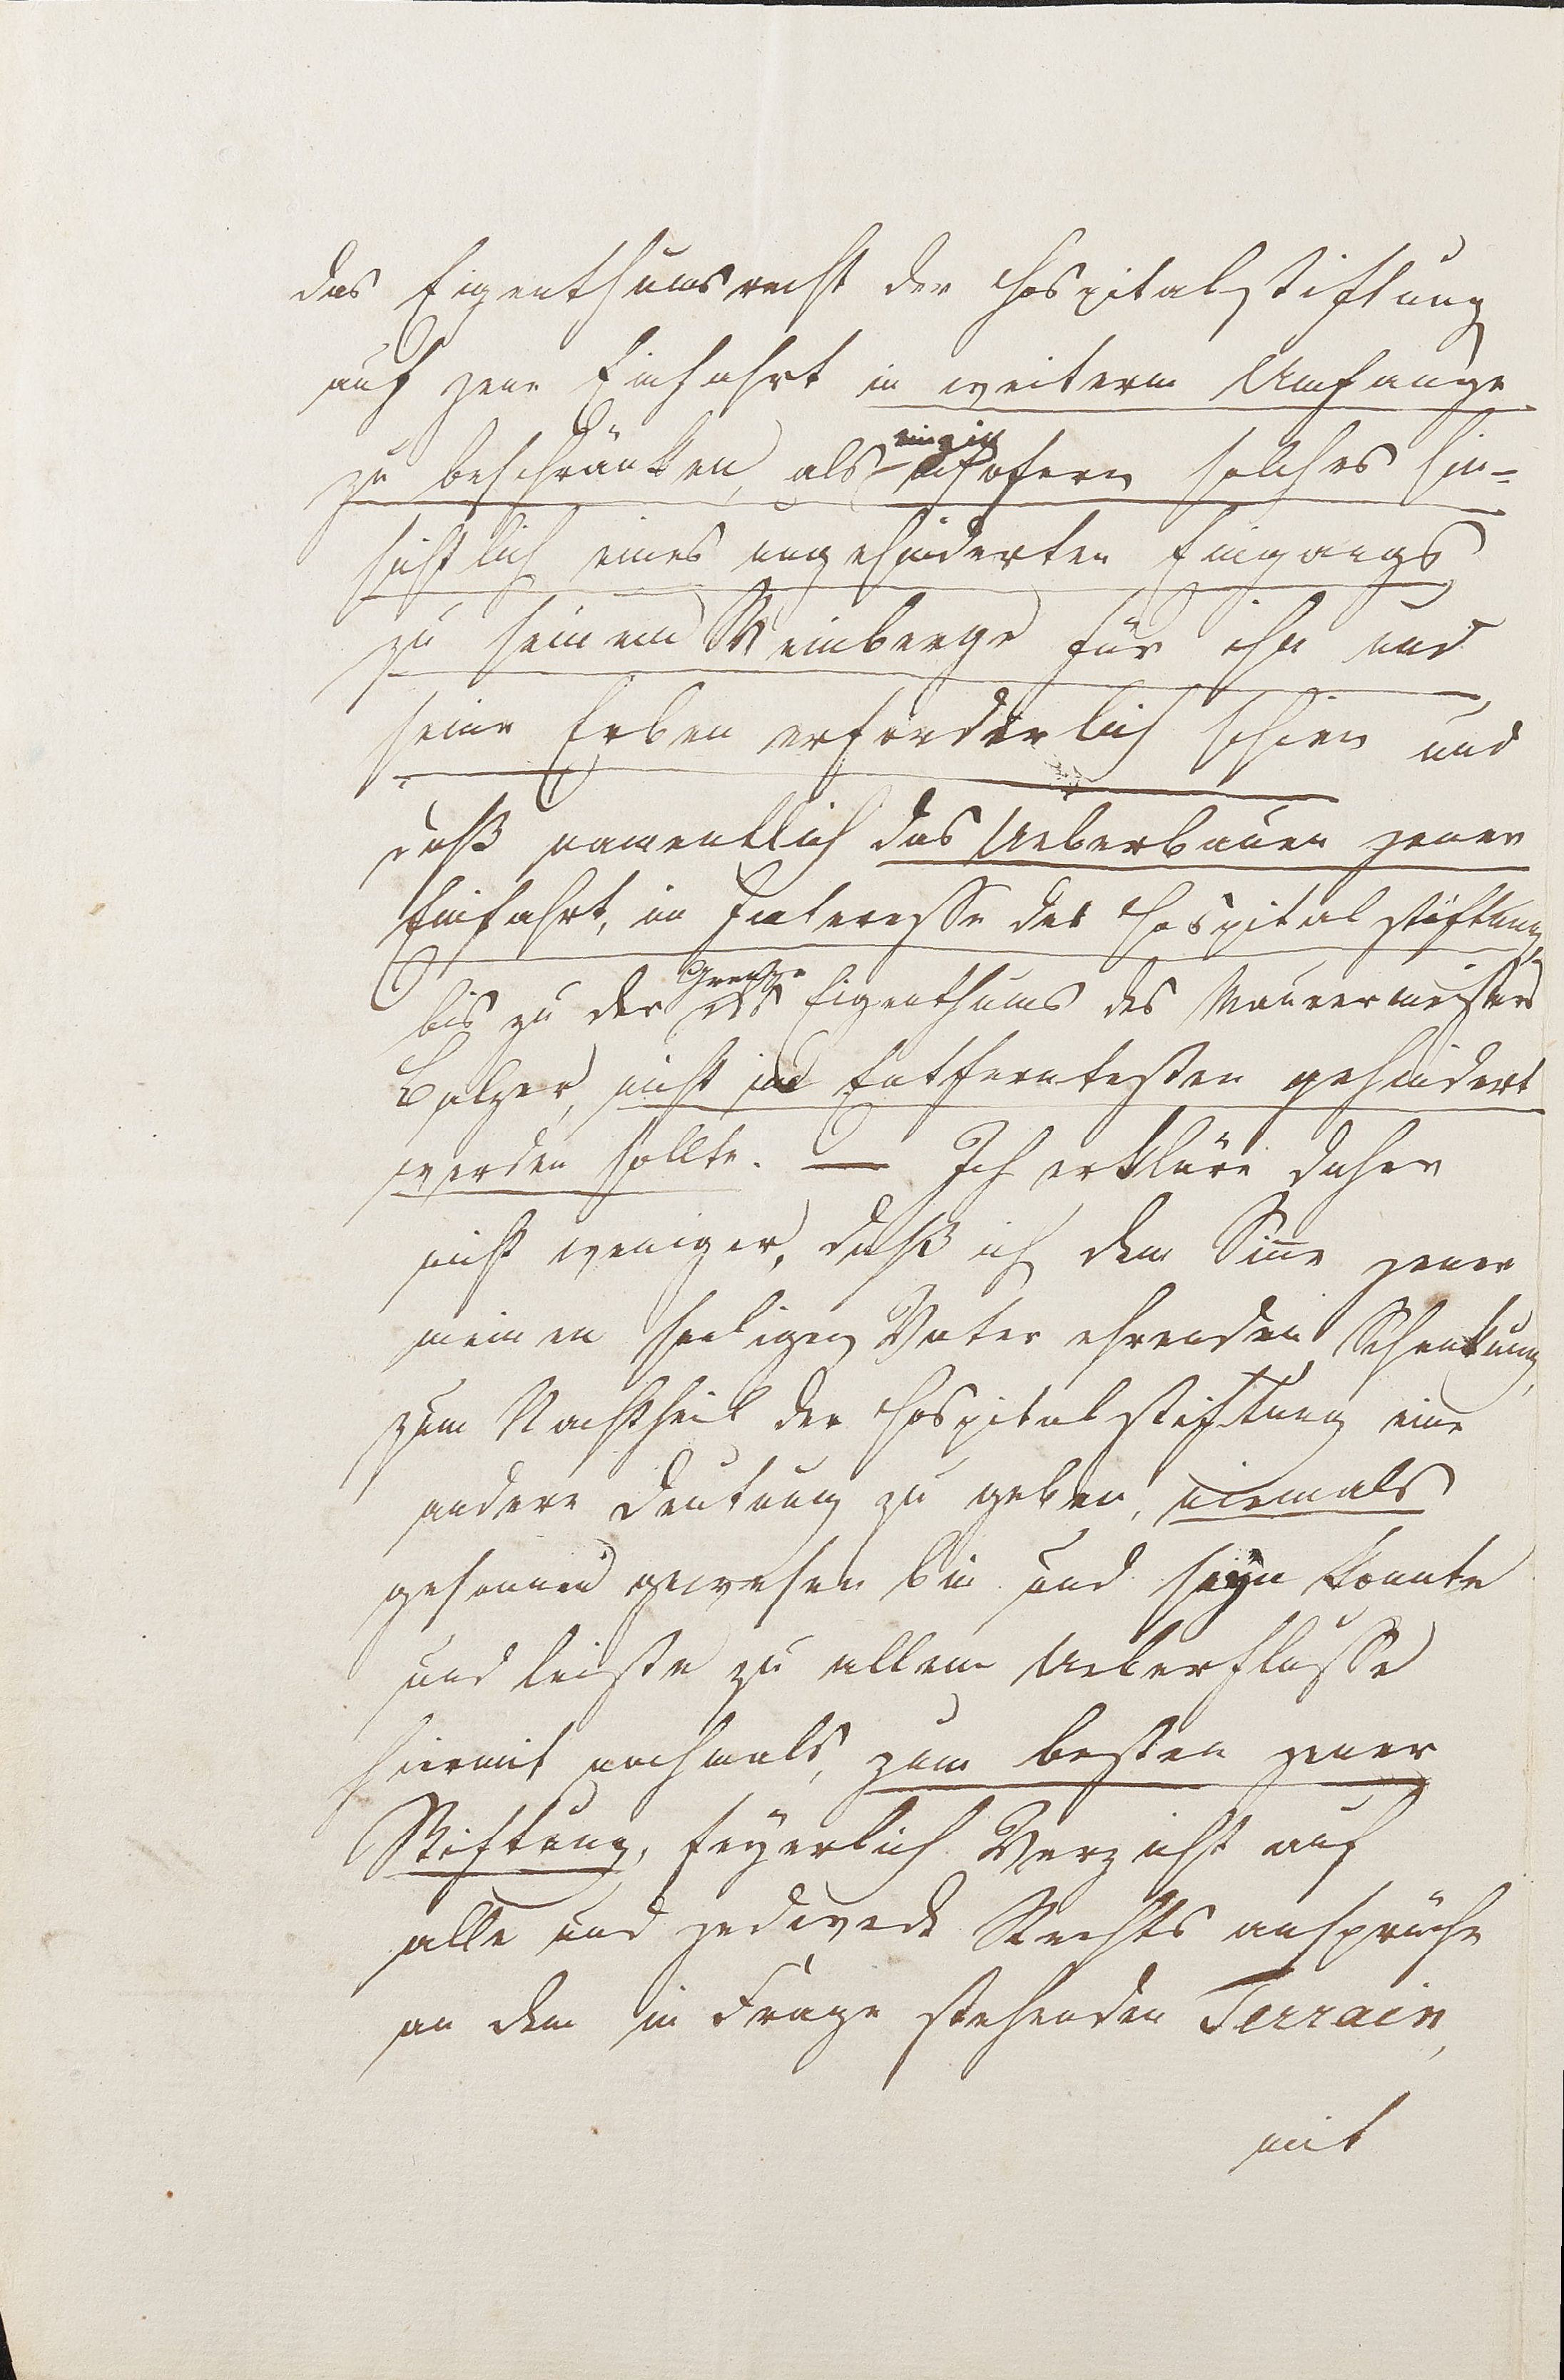 das Eigenthumsrecht der Hospitalstiftung
auf jene Einfahrt in weiterm Umfange
zu beschränken, als insofern solches hin-
sichtlich eines ungehinderten Eingangs
zu seinem Weinberge für ihn und
seine Erben erforderlich schien und
daß namentlich das Ueberbauen jener
Einfahrt, im Interesse der Hospitalstiftung,
bis zu der Grenze des Eigenthums des Maurermeisters
Balzer, nicht im Entferntesten gehindert
werden sollte. — Ich erkläre daher
nicht weniger, daß ich dem Sinne jener
meinen seeligen Vater ehrenden Schenkung,
zum Nachtheil der Hospitalstiftung eine
andere Deutung zu geben, niemals
gesonnen gewesen bin und seyn konnte
und leiste zu allem Ueberflusse
hiermit nochmals, zum besten jener
Stiftung, feyerlich Verzicht auf
alle und jedwede Rechtsansprüche
an dem in Frage stehenden Terrain,
mit